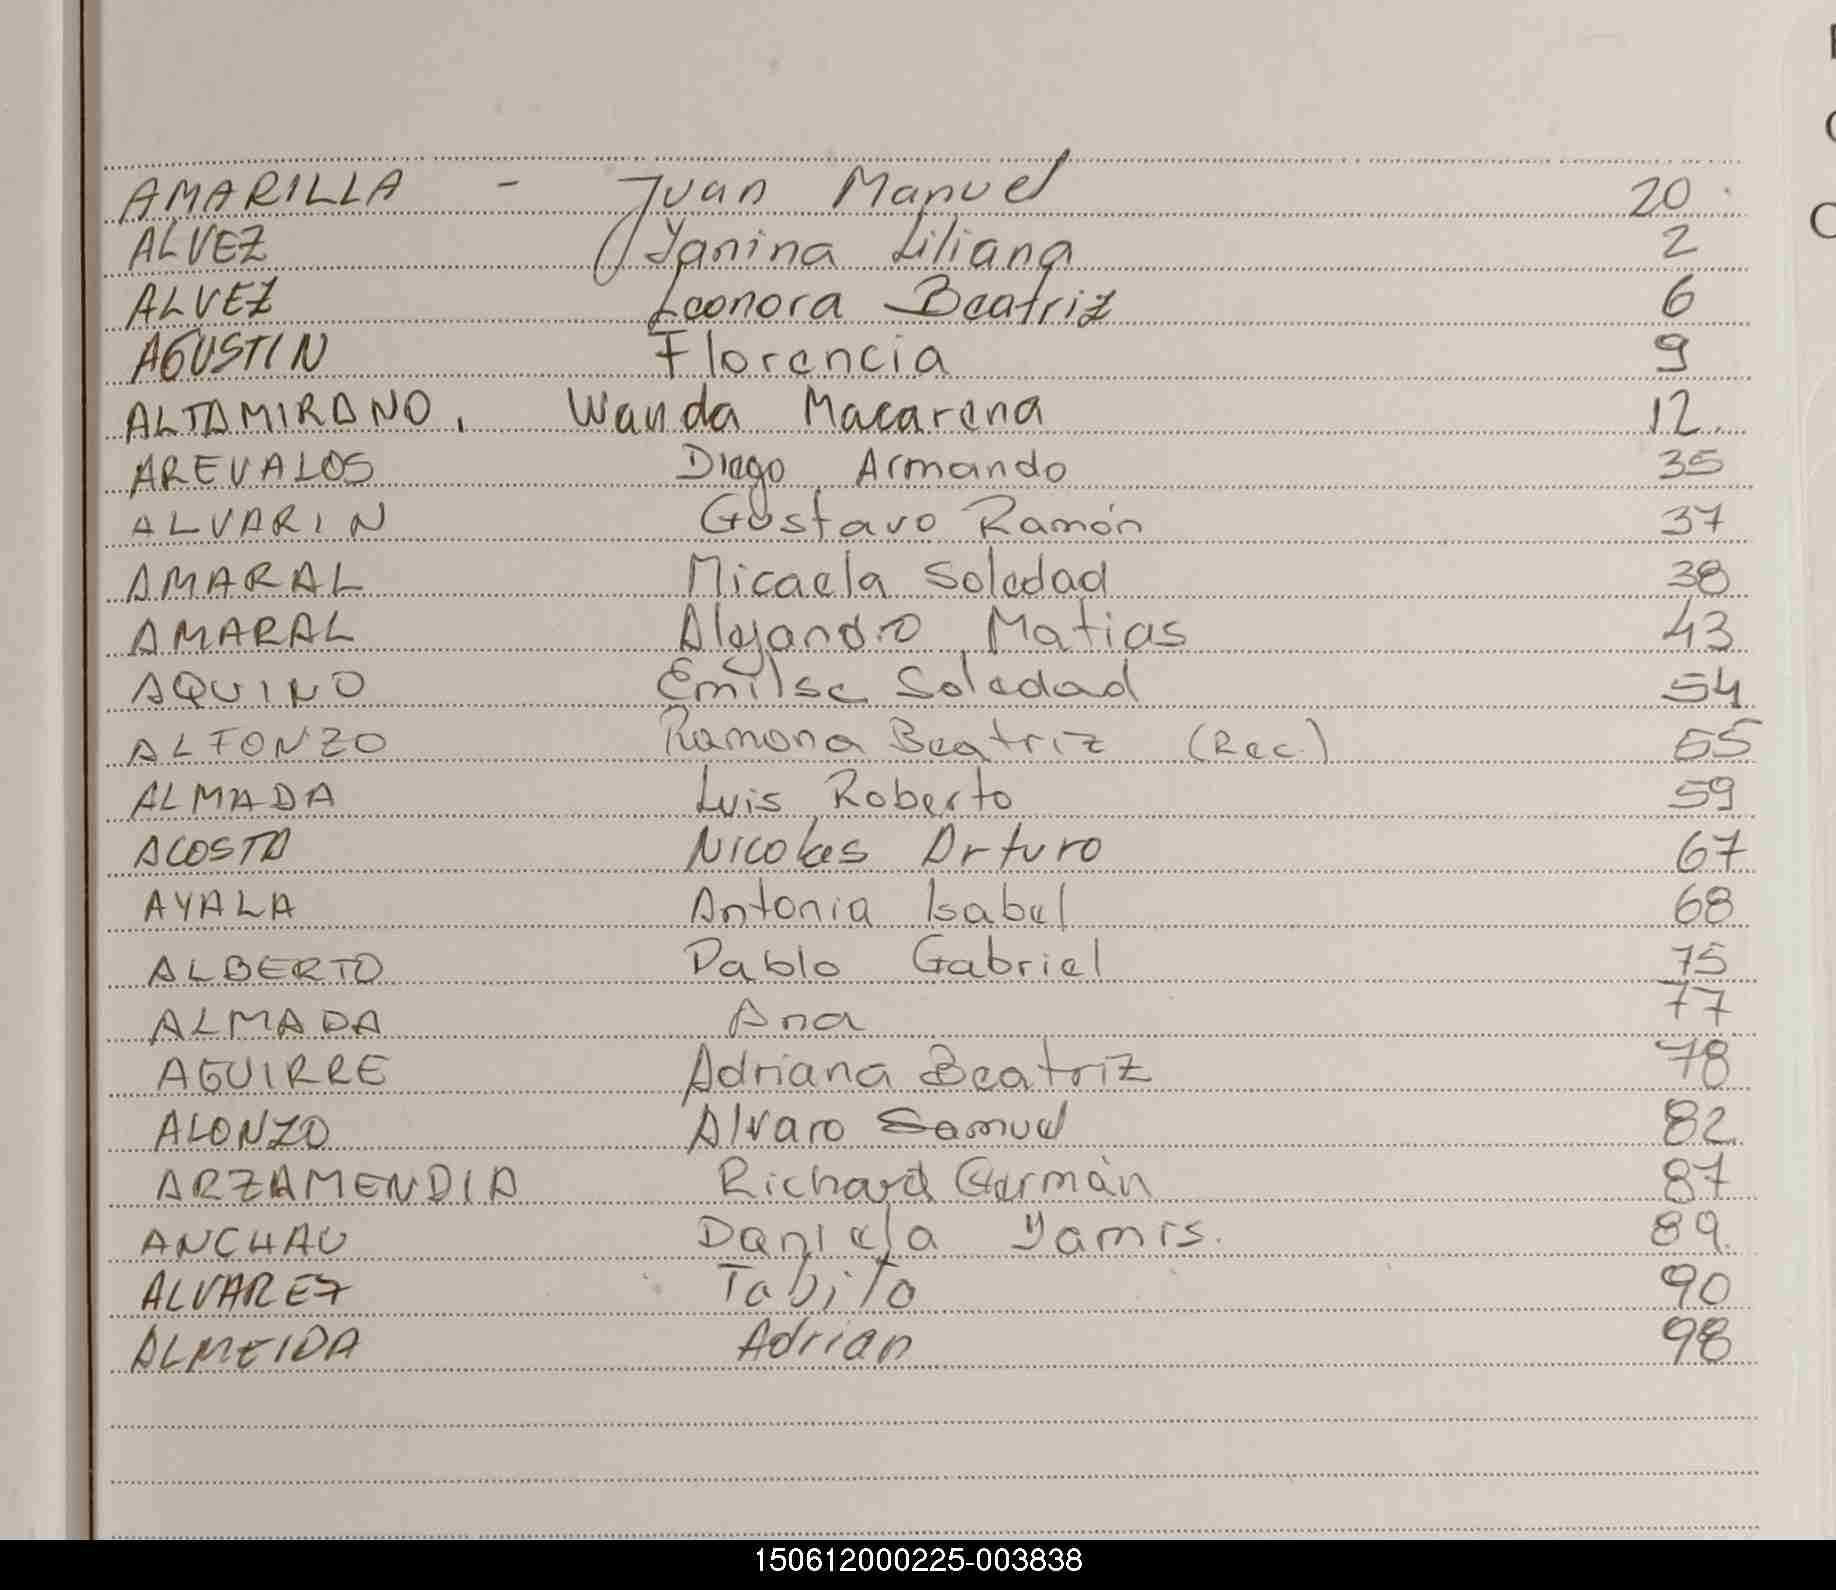 AMARILLA - Juan Manuel 20
ALVEZ Yanina Liliana 2
ALVEZ Leonora Beatriz 6
AGUSTIN Florencia 9
ALTAMIRANO, Wanda Macarena 12
AREVALOS Diego Armando 35
ALVARIN Gustavo Ramón 37
AMARAL Micaela Soledad 38
AMARAL Alejandro Matias 43
AQUINO Emilse Soledad 54
ALFONZO Ramona Beatriz (Rec.) 55
ALMADA Luis Roberto 59
ACOSTA Nicolas Arturo 67
AYALA Antonia Isabel 68
ALBERTO Pablo Gabriel 75
ALMADA Ana 77
AGUIRRE Adriana Beatriz 78
ALONZO Alvaro Samuel 82
ARZAMENDIA Richard Germán 87
ANCHAU Daniela 89
ALVAREZ 90
ALMEIDA Adrian 98
150612000225-003838